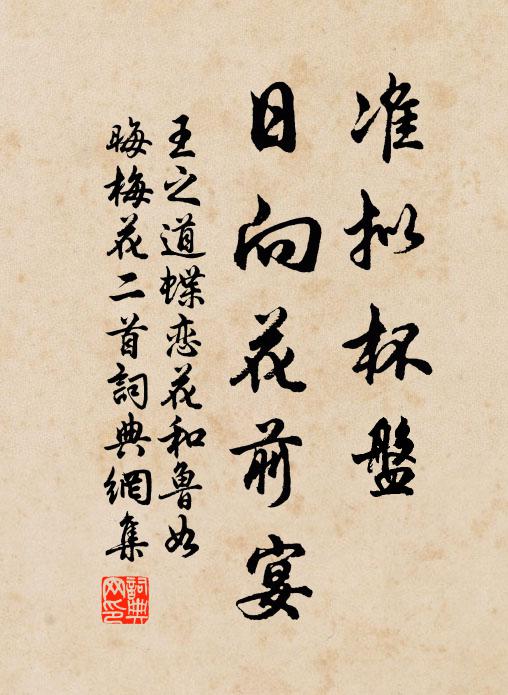 准拟杯盤
日向花前宴
王之道蝶恋花和鲁如
晦梅花二首詞典網集
詞典
网印